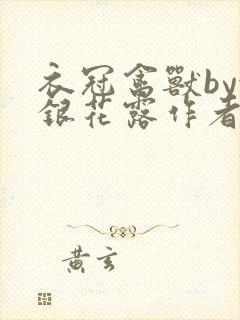 衣冠禽獸by
銀花露作者
黄玄